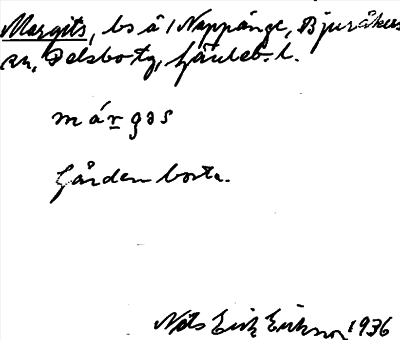 Margits, bs å 1 Nappänge, Bjuråkers
sn, Delsbo tg, Gävleb. l.
márgəs
Gården borta.
Nils Erik Eriksson 1936